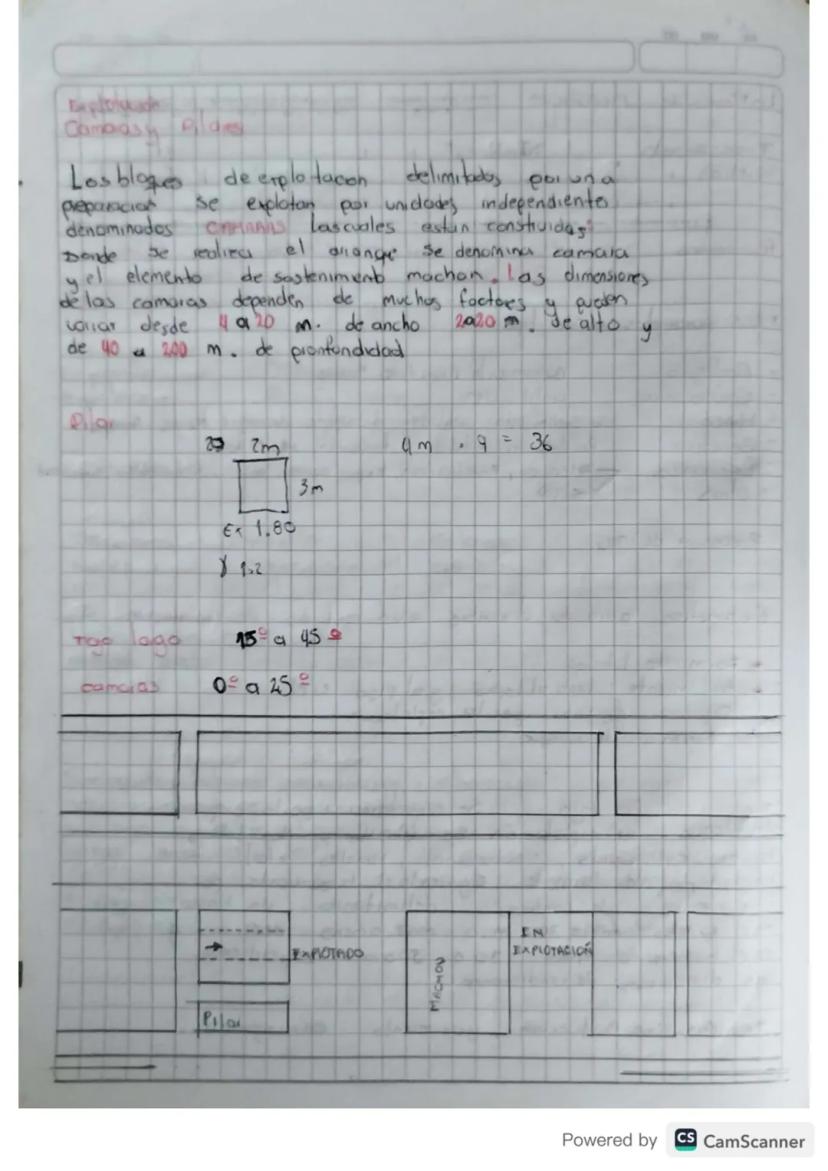 Explotación
Camaras y Pilares
Los bloques de explotacion delimitados por una
preparacion se explotan por unidades independiente
denominados CAMARAS las cuales estan constituidas
Donde se realiza el arranqe se denomina camara
y el elemento de sostenimiento machon. las dimensiones
de las camaras dependen de muchos factores y pueden
variar desde 4 a 20 m. de ancho 2a20 m. de alto y
de 40 a 200 m. de prontundidad
Pilar
2m 4m . 9 = 36
3m
1.80
γ 1.2
Tajo lago 15º a 45º
camaras 0º a 25º
EN
EXPLOTADO EXPLOTACIÓN
MACHON
Pilar
Powered by CS CamScanner